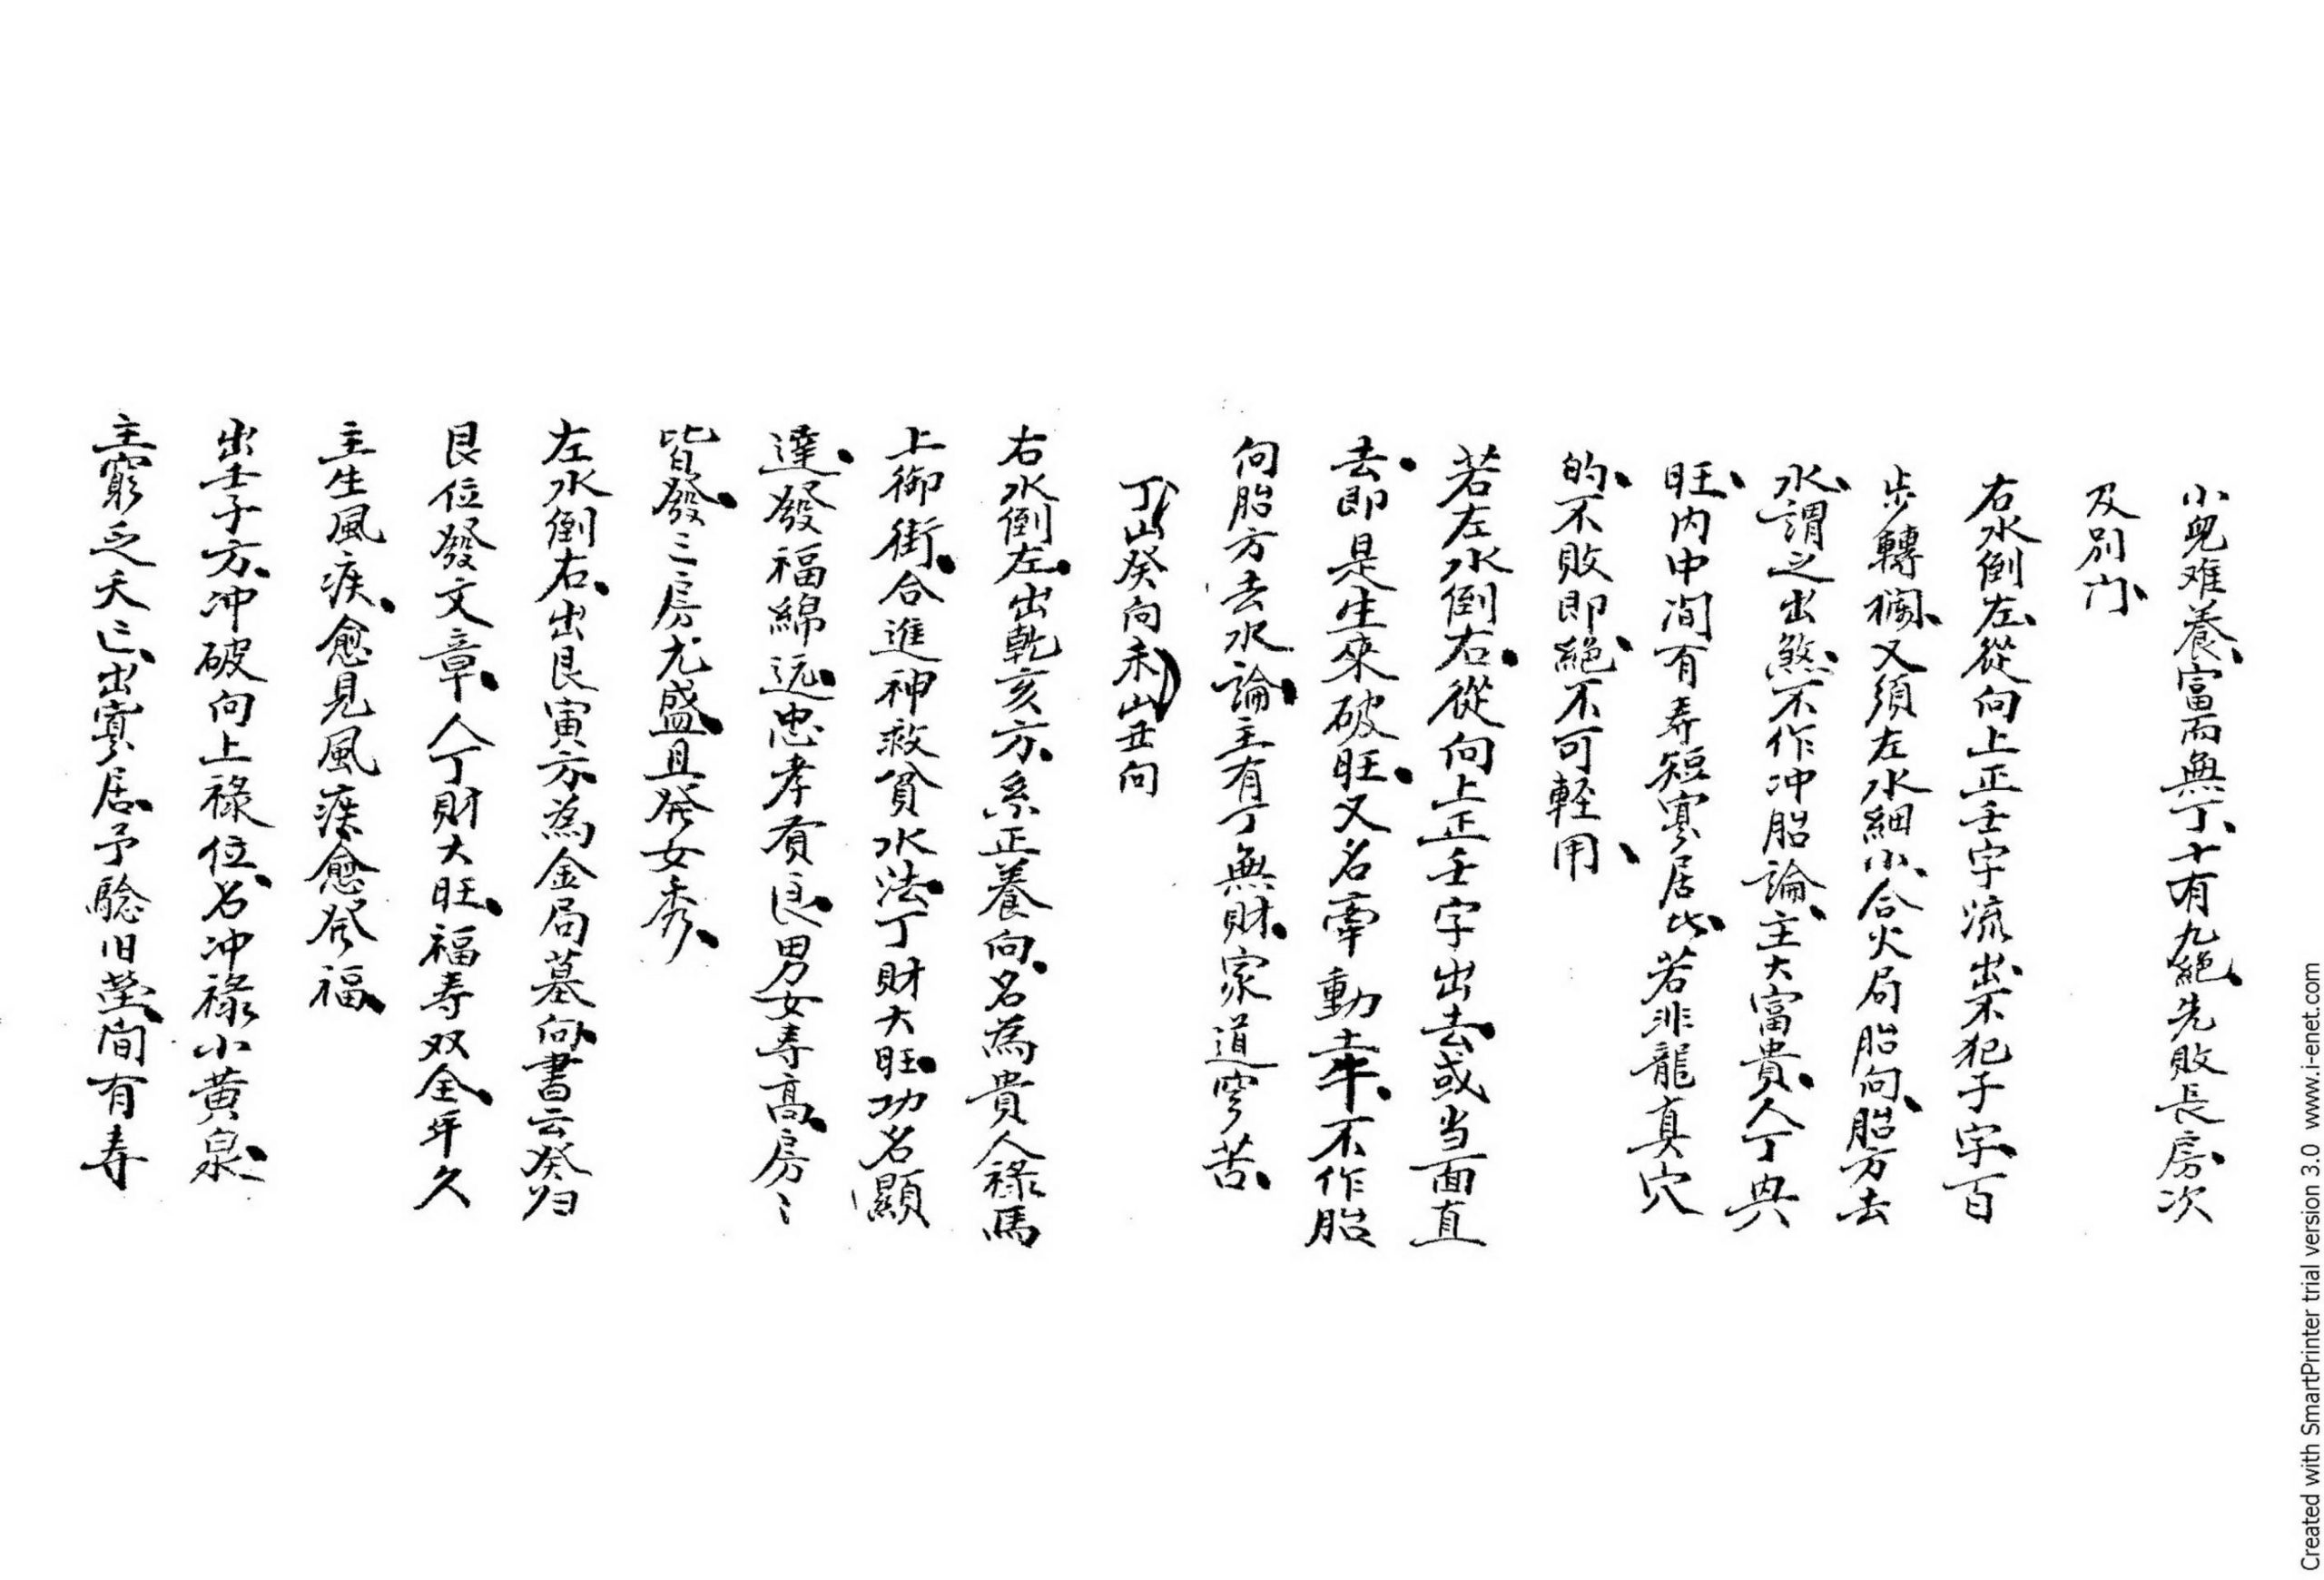 小兒难養、富而無丁、十有九絕、先敗長房、次
及別门、
右水倒左、從向上正壬字流出、不犯子字、百
步轉欄、又須左水細小、合火局胎向、胎方去
水、謂之出煞、不作冲胎論、主大富貴、人丁典
旺、内中间有寿短寡居、此若非龍真穴
的、不敗即絕、不可軽用、
若左水倒右、從向上正壬字出去、或当面直
去、即是生來破旺、又名牽動土牛、不作胎
向胎方去水論、主有丁無財、家道穷苦、
丁山癸向未山丑向
右水倒左、出乾亥方、系正養向、名為貴人禄馬
上御街、合進神救貧水法、丁財大旺、功名顯
達、發福綿远、忠孝有良、男女寿高、房〻
皆發、三房尤盛、且発女秀、
左水倒右、出艮寅方、為金局墓向、書云癸归
艮位發文章、人丁財大旺、福寿双全、年久
主生風疾、愈見風疾、愈発福、
出壬子方、冲破向上祿位、名冲祿小黄泉、
主窮乏夭亡、出寡居、予騐旧塋、间有寿
Created with SmartPrinter trial version 3.0 www.i-enet.com